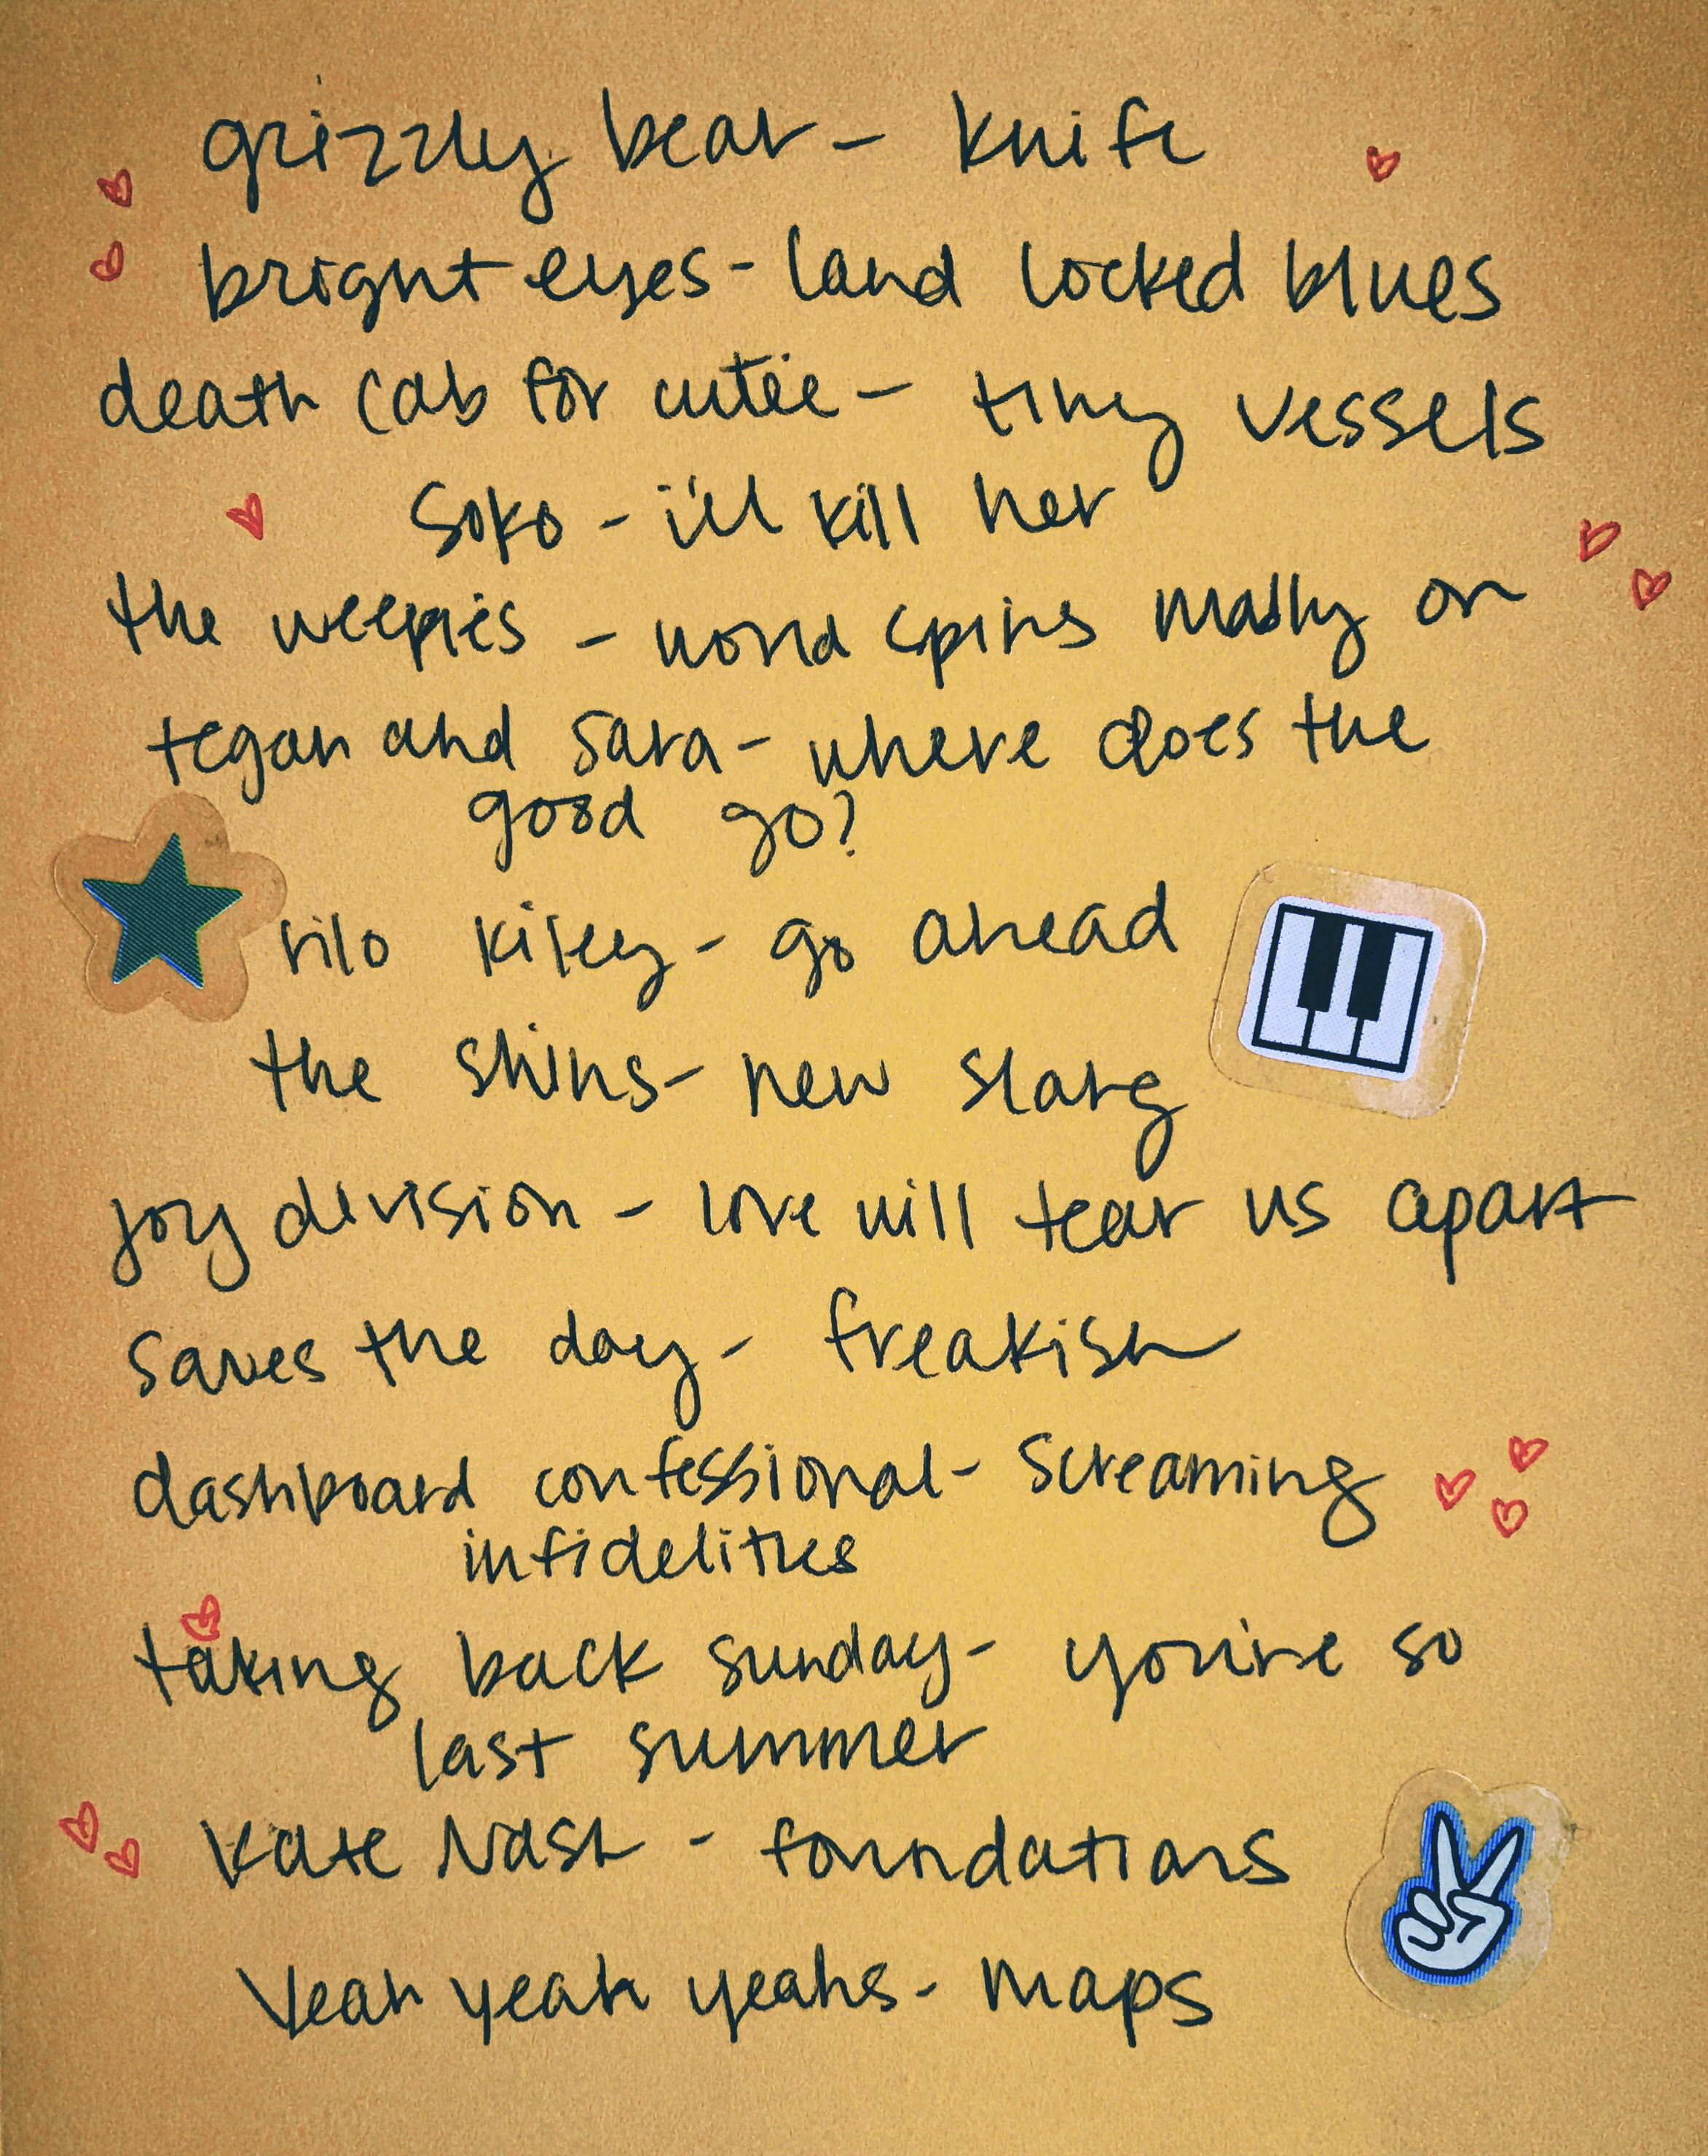 grizzly bear - knife
bright eyes - land locked blues
death cab for cutie - tiny vessels
Soko - i'll kill her
the weepies - world spins madly on
tegan and sara - where does the
good go?
rilo kiley - go ahead
the shins - new slang
joy division - love will tear us apart
saves the day - freakish
dashboard confessional - screaming
infidelities
taking back sunday - you're so
last summer
Kate Nash - foundations
Yeah yeah yeahs - maps